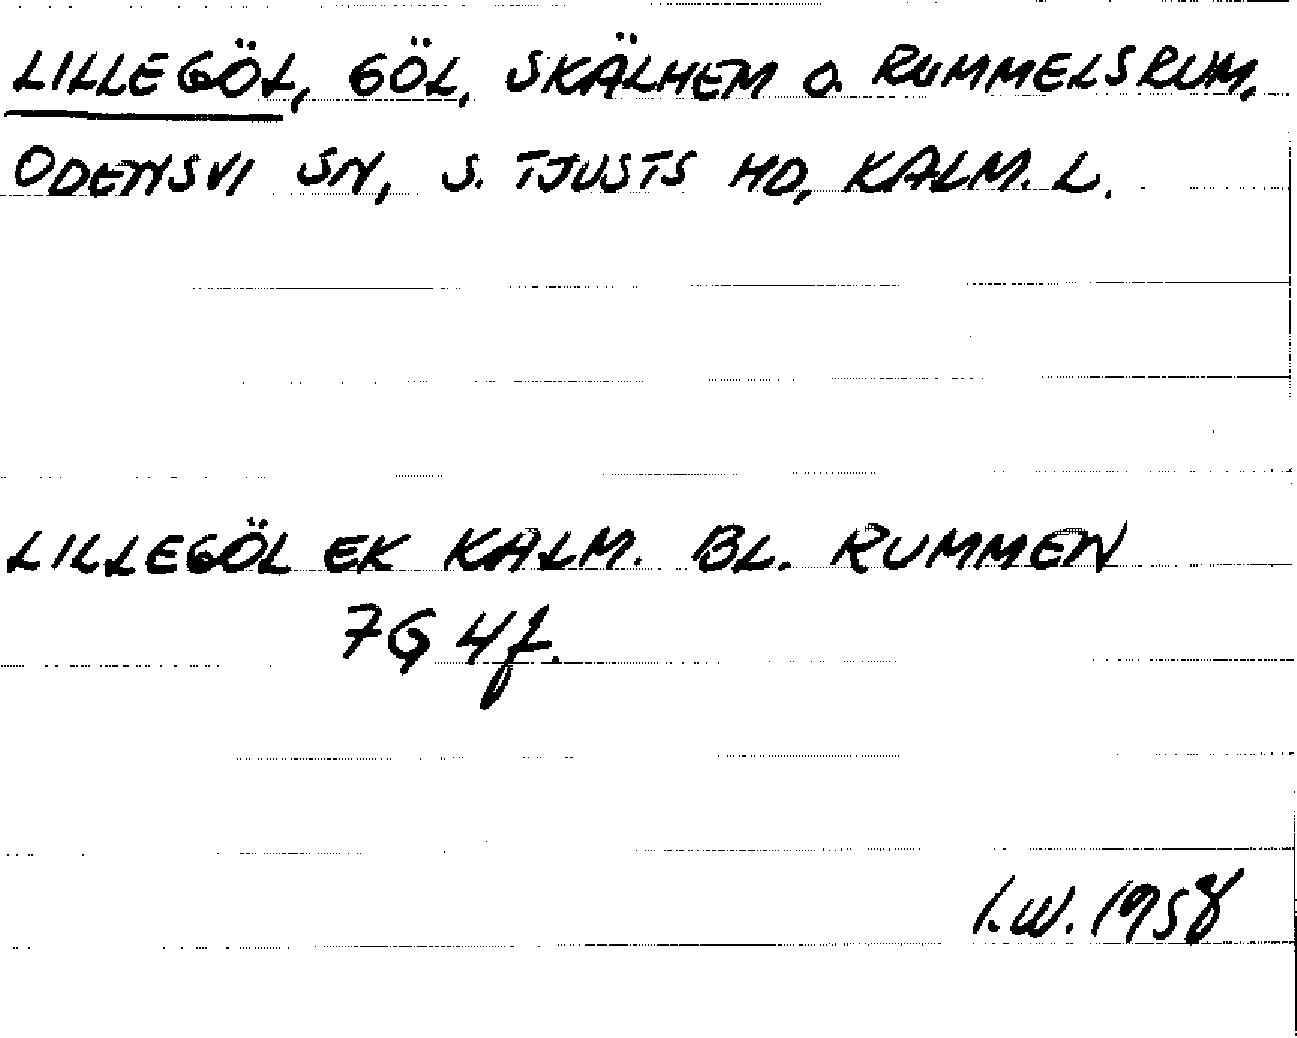 LILLEGÖL, GÖL, SKÄLHEM O. RUMMELSRUM,
ODENSVI SN, S. TJUSTS HD, KALM. L.
LILLEGÖL EK KALM. BL. RUMMEN
7G 4f.
I.W. 1958